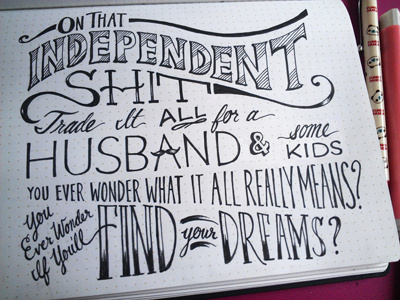 ON THAT
INDEPENDENT
SHIT
Trade it ALL for a
HUSBAND & some
KIDS
YOU EVER WONDER WHAT IT ALL REALLY MEANS?
You
Ever Wonder
If You'll
FIND your DREAMS?